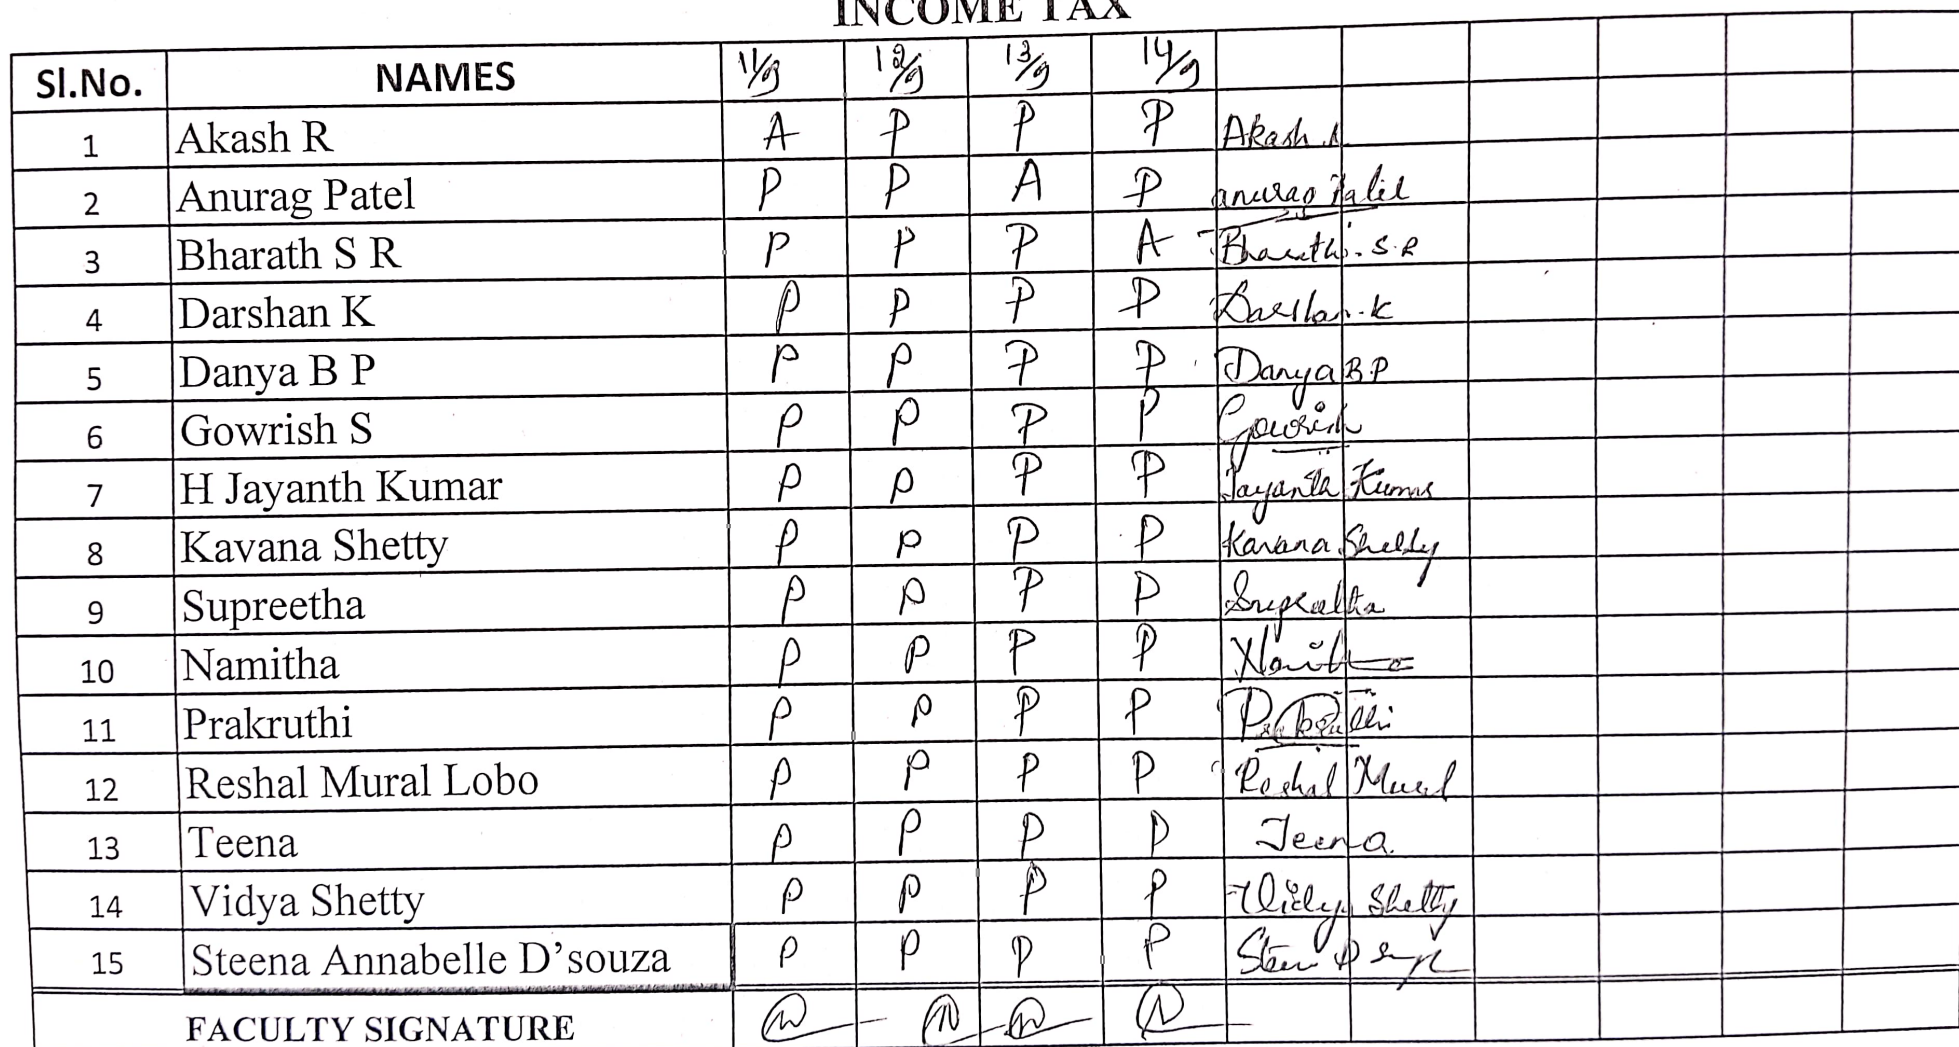 INCOME TAX
Sl.No. NAMES 11/9 12/9 13/9 14/9
1 Akash R A P P P Akash R
2 Anurag Patel P P A P anurag Patel
3 Bharath S R P P P A Bharath. S. R
4 Darshan K P P P P Darshan. K
5 Danya B P P P P P Danya B P
6 Gowrish S P P P P Gowrish
7 H Jayanth Kumar P P P P Jayanth Kumar
8 Kavana Shetty P P P P Kavana Shetty
9 Supreetha P P P P Supreetha
10 Namitha P P P P Namitha
11 Prakruthi P P P P Prakruthi
12 Reshal Mural Lobo P P P P Reshal Mural
13 Teena P P P P Teena
14 Vidya Shetty P P P P Vidya Shetty
15 Steena Annabelle D'souza P P P P
FACULTY SIGNATURE